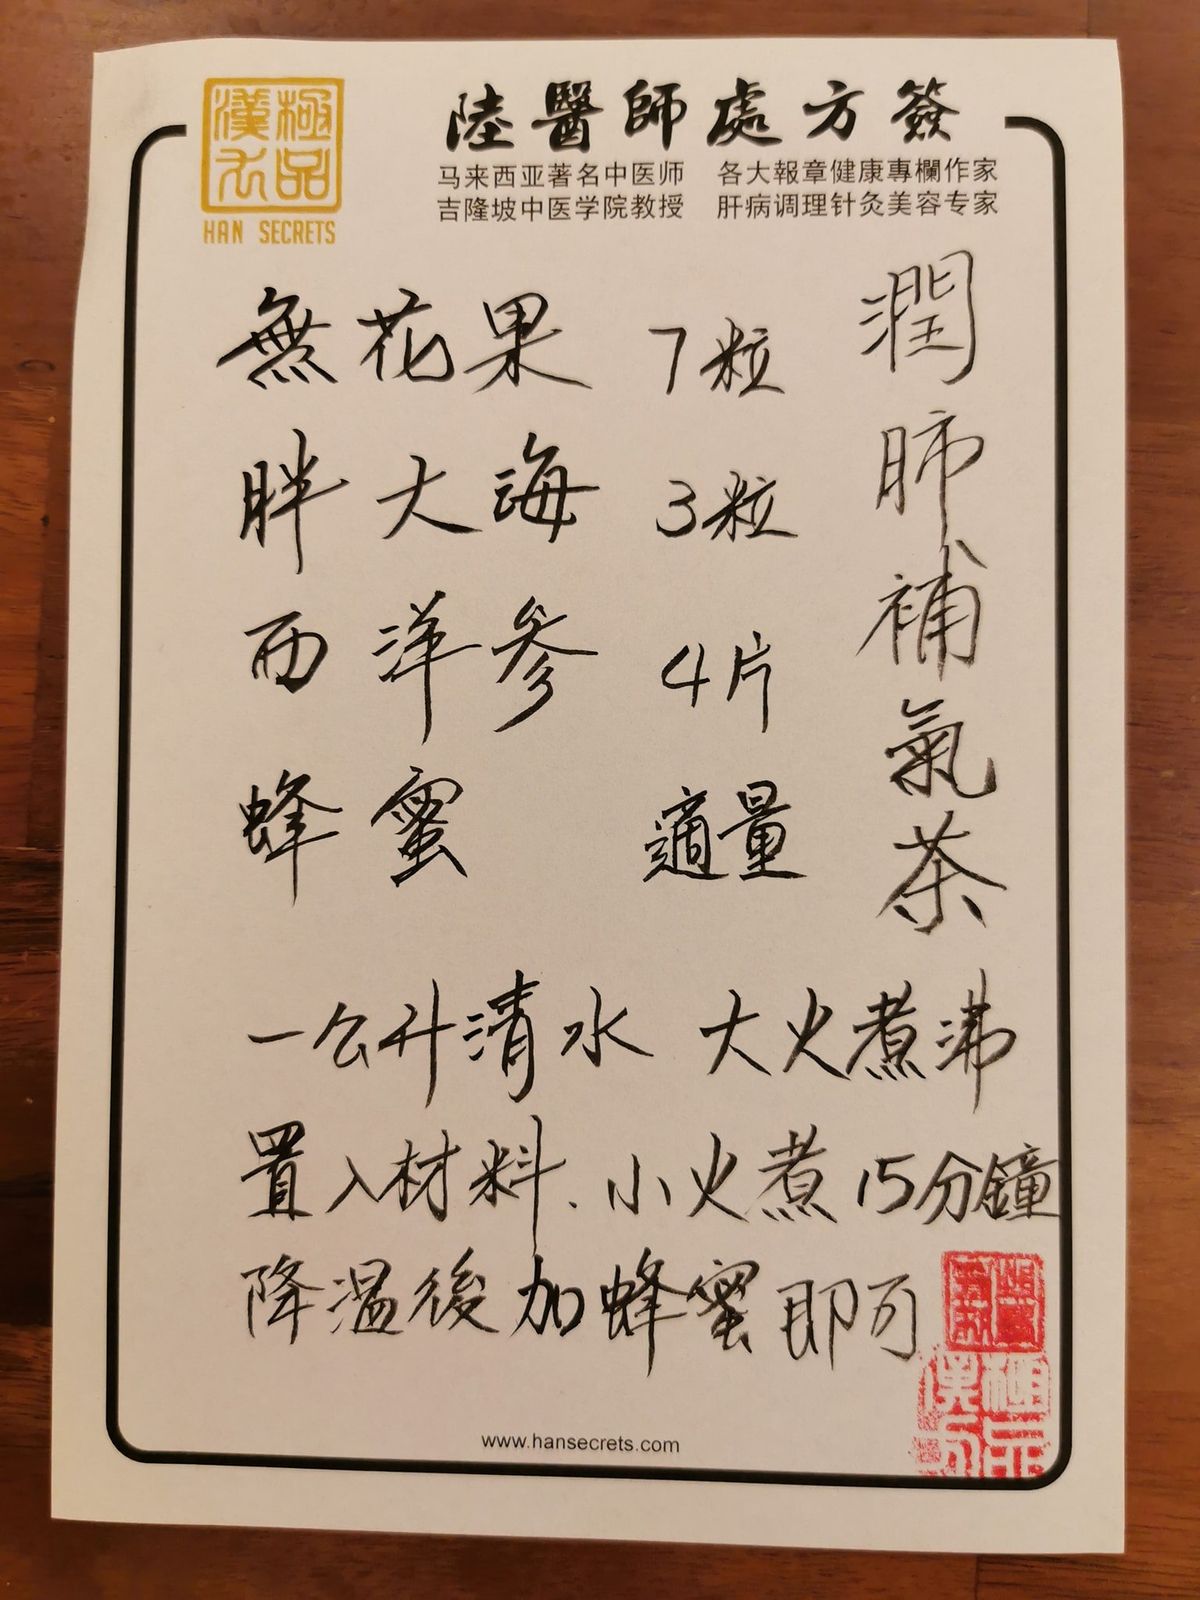 漢極
方品
HAN SECRETS
陸醫師處方簽
马来西亚著名中医师 各大報章健康專欄作家
吉隆坡中医学院教授 肝病调理针灸美容专家
潤肺補氣茶
無花果 7粒
胖大海 3粒
西洋參 4片
蜂蜜 適量
一公升清水 大火煮沸
置入材料、小火煮15分鐘
降溫後加蜂蜜即可
www.hansecrets.com